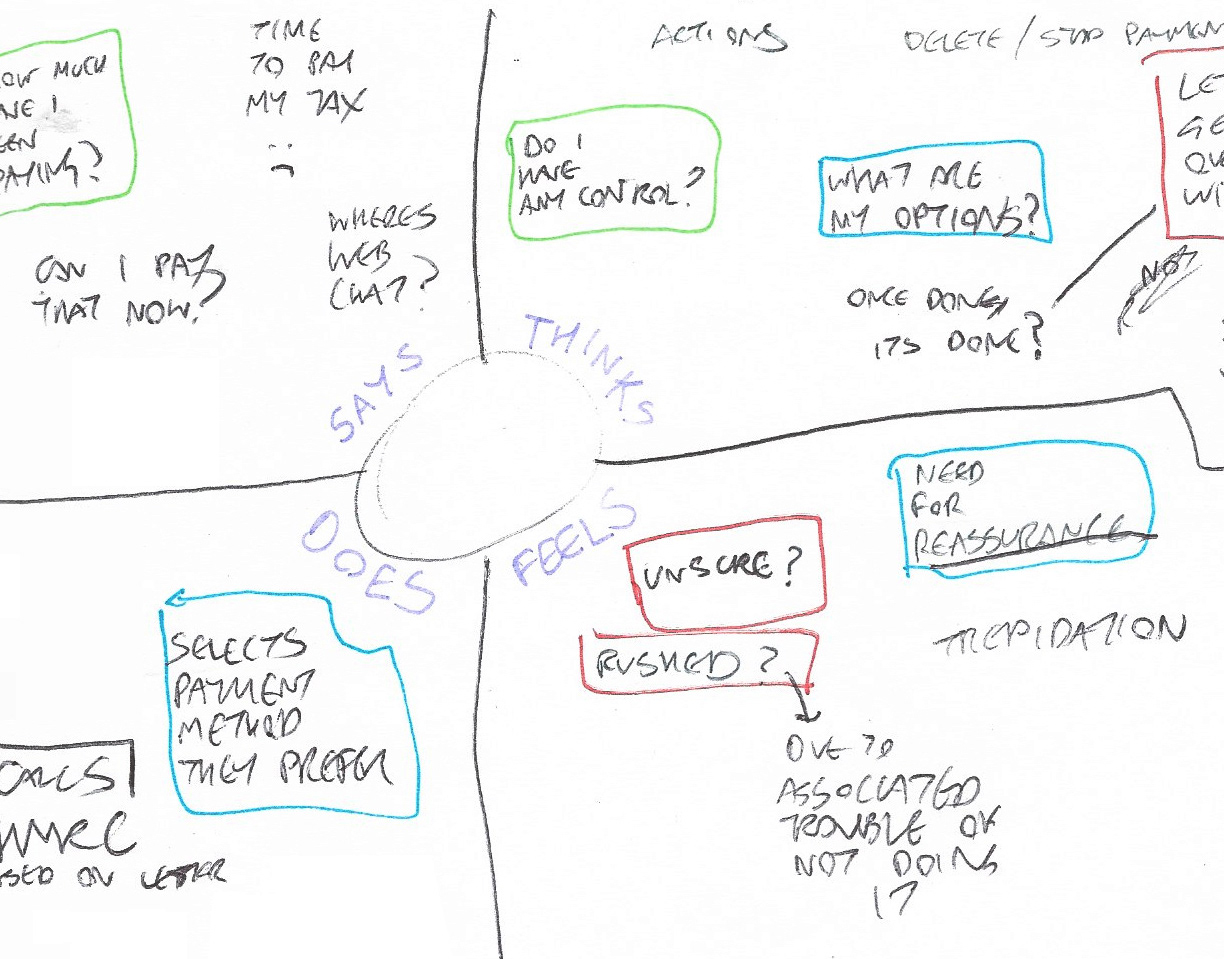 OW MUCH
I
EEN
PAYING?
TIME
TO PAY
MY TAX
CAN I PAY
THAT NOW?
WHERES
WEB
CHAT?
SAYS
ACTIONS
DELETE / STOP PAYMEN
DO I
HAVE
ANY CONTROL?
WHAT ARE
MY OPTIONS?
LET
GE
QUE
WI
ONCE DONE,
ITS DONE?
NOT
THINKS
DOES
SELECTS
PAYMENT
METHOD
THEY PREFER
CALLS
HMRC
ASED ON LETTER
FEELS
UNSURE?
RUSHED?
DUE TO
ASSOCIATED
TROUBLE OF
NOT DOING
IT
NEED
FOR
REASSURANCE
TREPIDATION